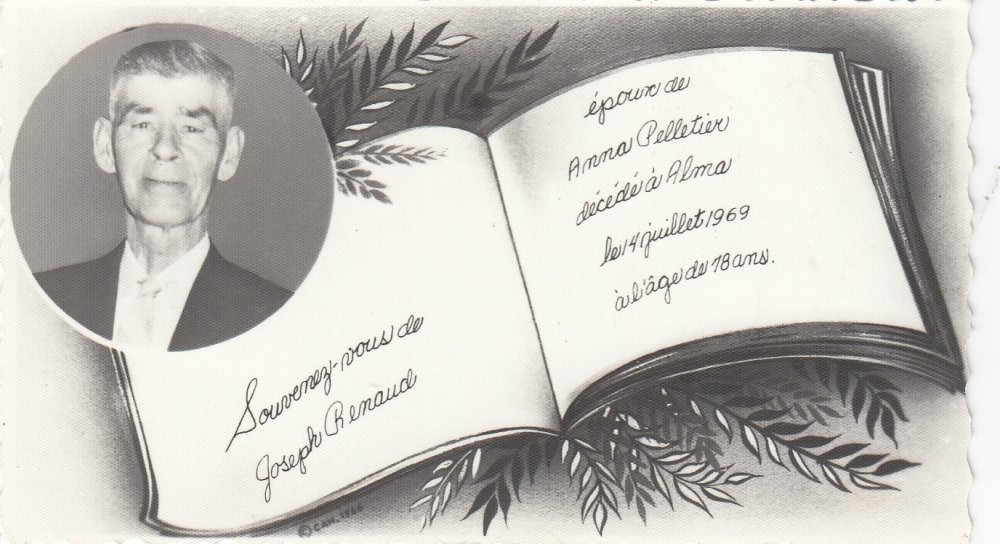 Souvenez-vous de
Joseph Renaud
époux de
Anna Pelletier
décédé à Alma
le 14 juillet 1969
à l'âge de 78 ans.